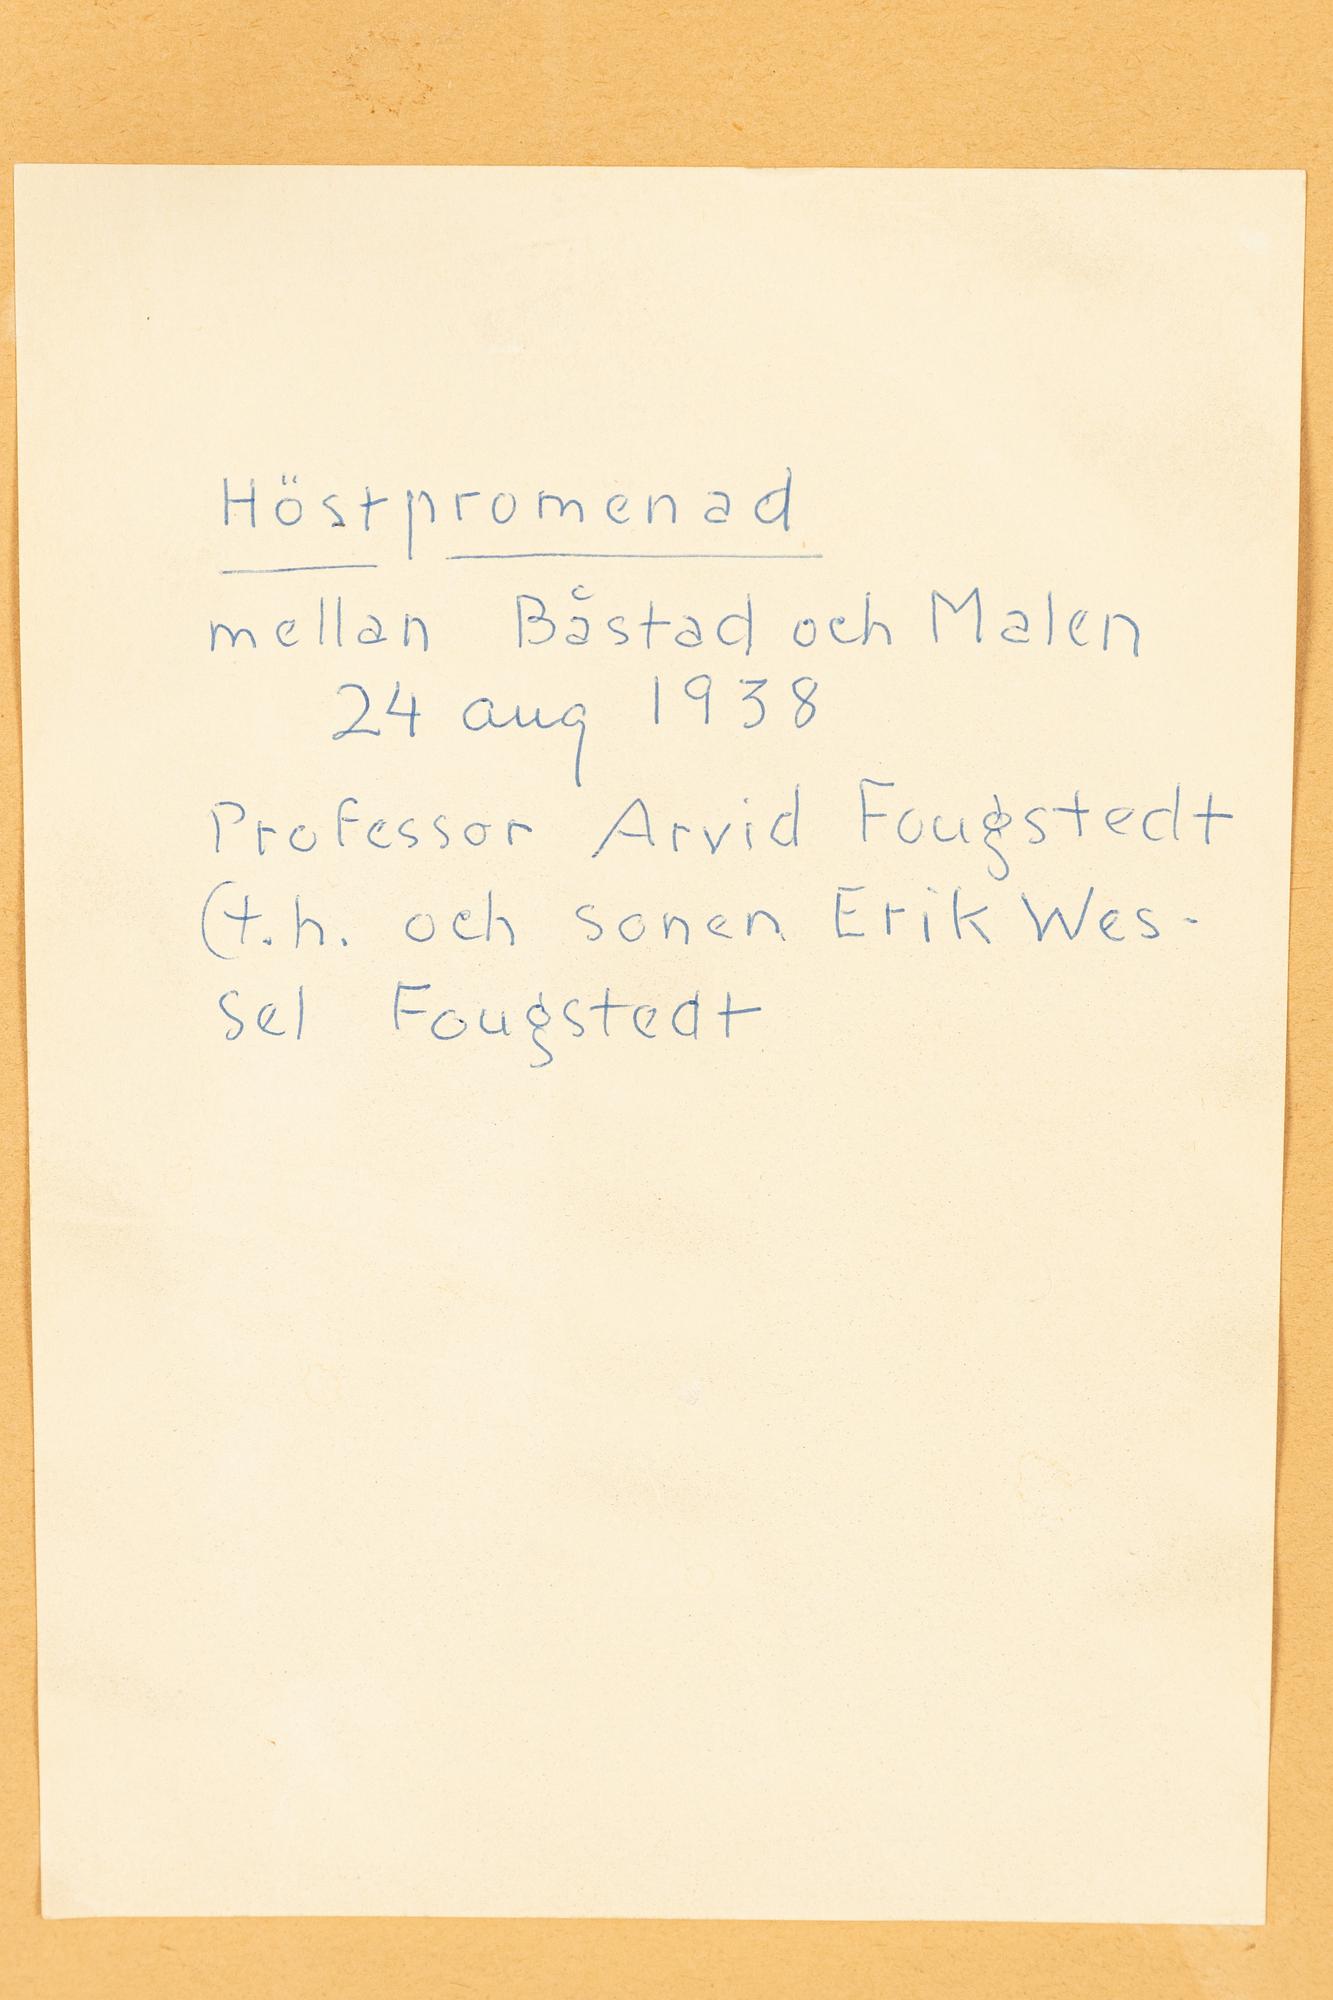 Höstpromenad
mellan Båstad och Malen
24 aug 1938
Professor Arvid Fougstedt
(t.h. och sonen Erik Wes-
sel Fougstedt